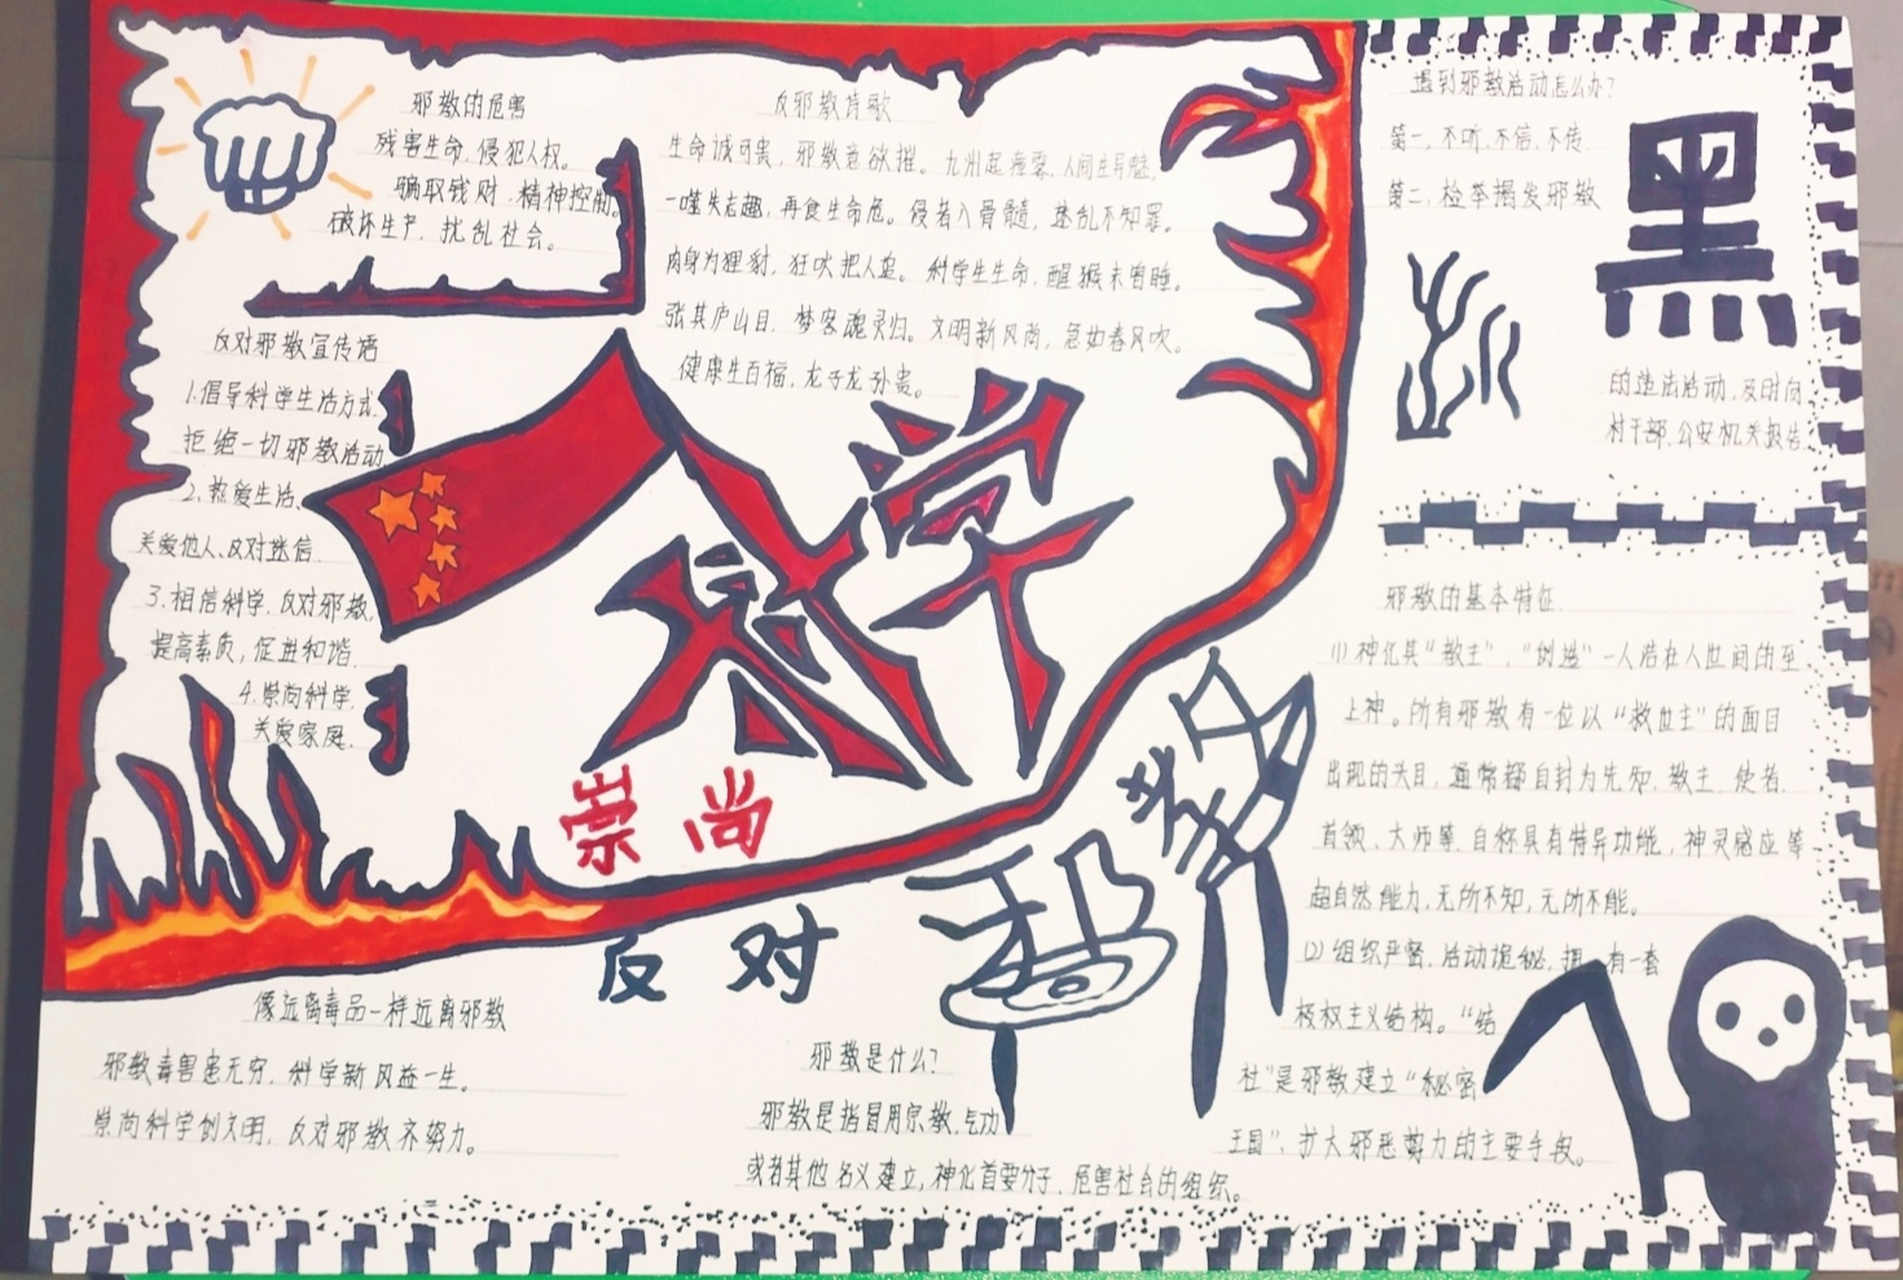 邪教的危害
残害生命,侵犯人权。
骗取钱财,精神控制。
破坏生产,扰乱社会。
反邪教诗歌
生命诚可贵,邪教意欲摧。九州起瘴雾,人间生异魅。
一噬失志趣,再食生命危。侵者入骨髓,迷乱不知罪。
肉身为狸豺,狂吠把人追。科学生生命,醒猴未曾睡。
张其庐山目,梦客魂灵归。文明新风尚,急如春风吹。
健康生百福,龙子龙孙贵。
反对邪教宣传语
1.倡导科学生活方式,
拒绝一切邪教活动
2.热爱生活、
关爱他人、反对迷信
3.相信科学,反对邪教,
提高素质,促进和谐
4.崇尚科学,
关爱家庭.
科学
崇尚
反对
邪教
像远离毒品一样远离邪教
邪教毒害患无穷,科学新风益一生。
崇尚科学创文明,反对邪教齐努力。
邪教是什么?
邪教是指冒用宗教,气功
或者其他名义建立,神化首要分子,危害社会的组织。
遇到邪教活动怎么办?
第一,不听、不信、不传
第二,检举揭发邪教
黑
的违法活动,及时向
村干部、公安机关报告.
邪教的基本特征
(1)神化其“教主”,“创造”一人活在人世间的至
上神。所有邪教有一位以“救世主”的面目
出现的头目,通常都自封为先知、教主、使者、
首领、大师等,自称具有特异功能,神灵感应等
超自然能力,无所不知,无所不能。
(2)组织严密,活动诡秘,拥有一套
极权主义结构。“结
社”是邪教建立“秘密
王国”,扩大邪恶势力的主要手段。